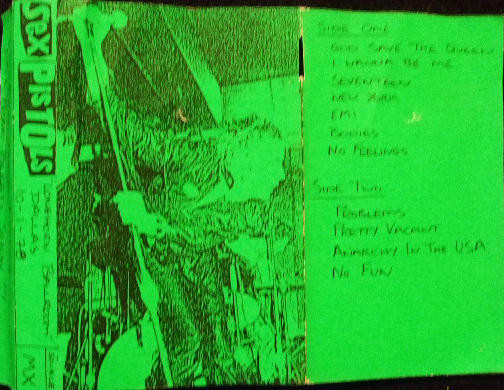 SEX PISTOLS
LONGHORN BALLROOM
DALLAS
10-1-78
MX
SIDE ONE
GOD SAVE THE QUEEN
I WANNA BE ME
SEVENTEEN
NEW YORK
EMI
BODIES
NO FEELINGS
SIDE TWO
PROBLEMS
PRETTY VACANT
ANARCHY IN THE USA
NO FUN